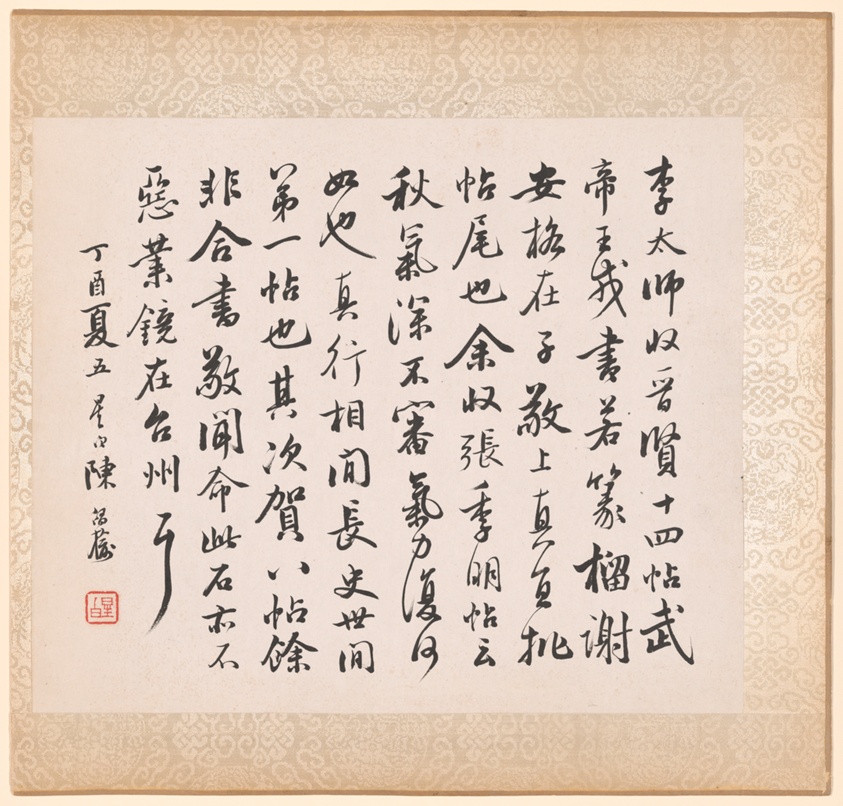 李太師收晉賢十四帖武
帝王戎書若篆榴謝
安格在子敬上真宜批
帖尾也余收張季明帖云
秋氣深不審氣力復何
如也真行相間長史世間
第一帖也其次賀八帖餘
非合書敬聞命此石亦不
惡業鏡在台州耳
丁酉夏五星白陳